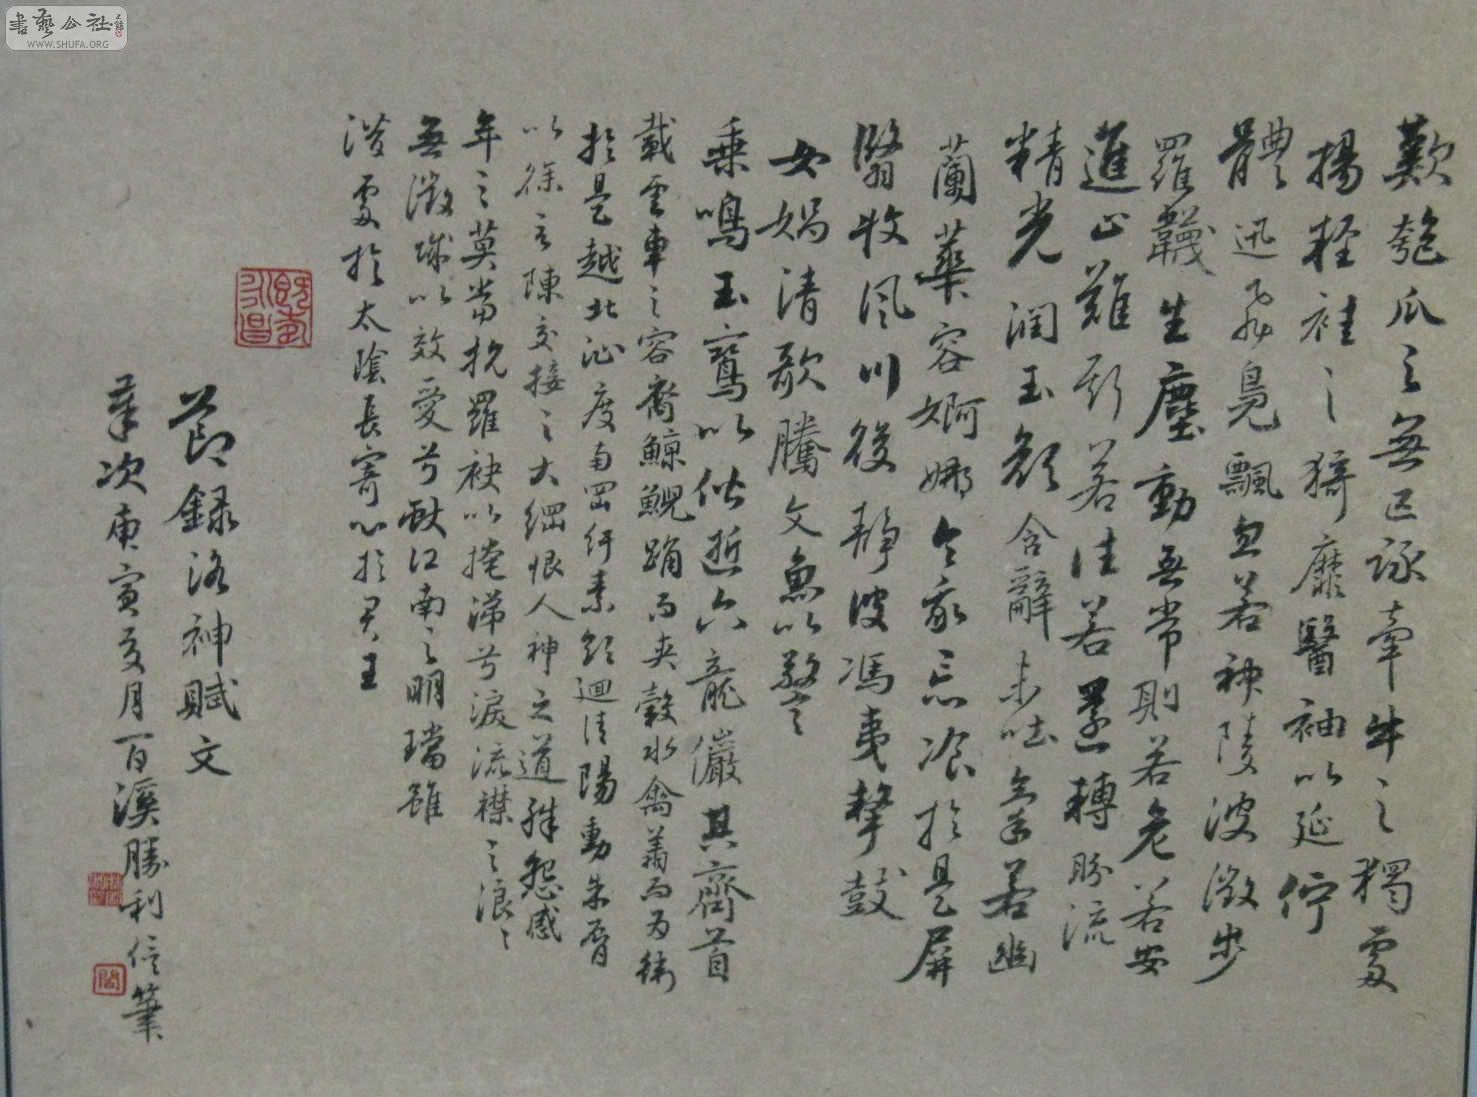 歎匏瓜之無匹詠牽牛之獨處
揚輕袿之猗靡翳袖以延佇
體迅飛鳧飄忽若神陵波微步
羅襪生塵動無常則若危若安
進止難期若往若還轉盼流
精光潤玉顏含辭未吐氣若幽
蘭華容婀娜令我忘飡於是屏
翳收風川後靜波馮夷擊鼓
女媧清歌騰文魚以警
乘鳴玉鸞以偕逝六龍儼其齊首
載雲車之容裔鯨鯢踴而夾轂水禽翔而為衛
於是越北沚度南岡紆素領迴清陽動朱脣
以徐言陳交接之大綱恨人神之道殊怨盛
年之莫當抗羅袂以掩涕兮淚流襟之浪浪
無微誠以效愛兮獻江南之明璫雖
潛處於太陰長寄心於君王
節錄洛神賦文
歲次庚寅夏月百溪勝利信筆
書藝公社
WWW.SHUFA.ORG